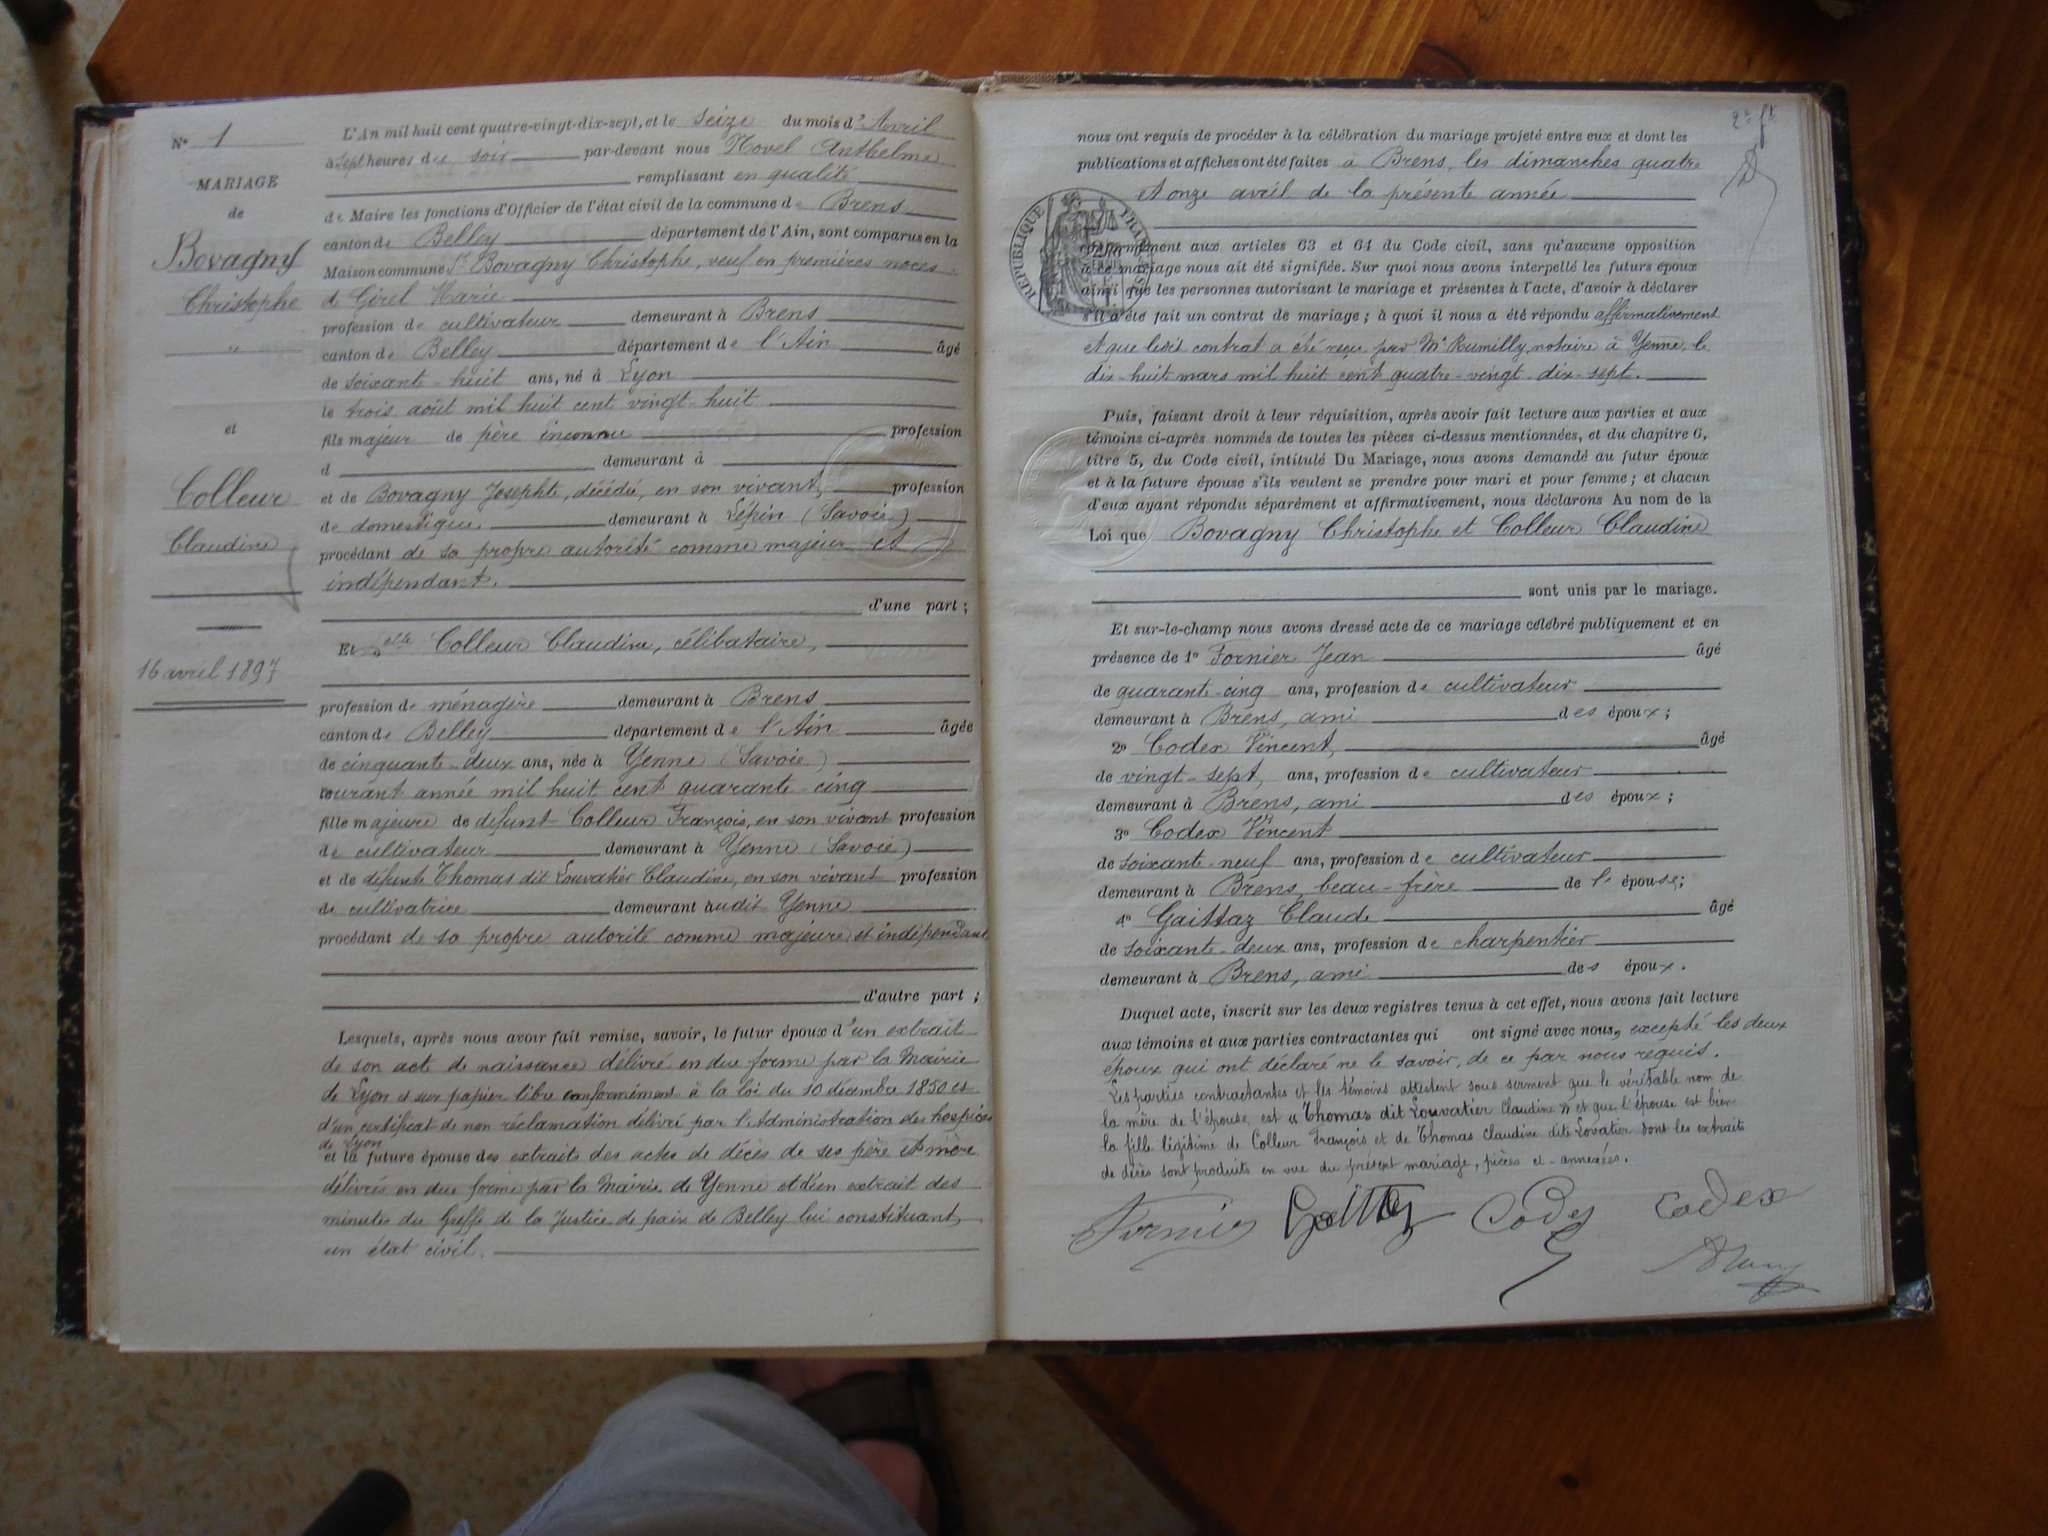 N° 1
MARIAGE
de
Bovagny
Christophe
"
et
Colleur
Claudine
16 avril 1897
L'An mil huit cent quatre-vingt-dix-sept, et le seize du mois d'Avril
à sept heures du soir par-devant nous Novel Anthelme
remplissant en qualité
de Maire les fonctions d'Officier de l'état civil de la commune de Brens
canton de Belley département de l'Ain, sont comparus en la
Maison commune Sr Bovagny Christophe, veuf en premières noces
de Girel Marie
profession de cultivateur demeurant à Brens
canton de Belley département de l'Ain âgé
de soixante-huit ans, né à Lyon
le trois août mil huit cent vingt-huit
fils majeur de père inconnu profession
d demeurant à
et de Bovagny Josephte, décédée, en son vivant, profession
de domestique demeurant à Lépin (Savoie)
procédant de sa propre autorité comme majeur et
indépendant.
d'une part ;
Et Delle Colleur Claudine, célibataire,
profession de ménagère demeurant à Brens
canton de Belley département de l'Ain âgée
de cinquante-deux ans, née à Yenne (Savoie)
courant année mil huit cent quarante-cinq
fille majeure de défunt Colleur François, en son vivant profession
de cultivateur demeurant à Yenne (Savoie)
et de défunte Thomas dit Louvatier Claudine, en son vivant profession
de cultivatrice demeurant audit Yenne
procédant de sa propre autorité comme majeure et indépendante
d'autre part ;
Lesquels, après nous avoir fait remise, savoir, le futur époux d'un extrait
de son acte de naissance délivré en due forme par la Mairie
de Lyon et sur papier libre conformément à la loi du 10 décembre 1850 et
d'un certificat de non réclamation délivré par l'Administration des hospices
de Lyon
et la future épouse des extraits des actes de décès de ses père et mère
délivrés en due forme par la Mairie de Yenne et d'un extrait des
minutes du Greffe de la Justice de paix de Belley lui constituant
un état civil.
2e ft
nous ont requis de procéder à la célébration du mariage projeté entre eux et dont les
publications et affiches ont été faites à Brens, les dimanches quatre
et onze avril de la présente année
RÉPUBLIQUE FRANÇAISE
conformément aux articles 63 et 64 du Code civil, sans qu'aucune opposition
à ce mariage nous ait été signifiée. Sur quoi nous avons interpellé les futurs époux
ainsi que les personnes autorisant le mariage et présentes à l'acte, d'avoir à déclarer
s'il a été fait un contrat de mariage ; à quoi il nous a été répondu affirmativement
et que ledit contrat a été reçu par Me Rumilly, notaire à Yenne, le
dix-huit mars mil huit cent quatre-vingt-dix-sept.
Puis, faisant droit à leur réquisition, après avoir fait lecture aux parties et aux
témoins ci-après nommés de toutes les pièces ci-dessus mentionnées, et du chapitre 6,
titre 5, du Code civil, intitulé Du Mariage, nous avons demandé au futur époux
et à la future épouse s'ils veulent se prendre pour mari et pour femme ; et chacun
d'eux ayant répondu séparément et affirmativement, nous déclarons Au nom de la
Loi que Bovagny Christophe et Colleur Claudine
sont unis par le mariage.
Et sur-le-champ nous avons dressé acte de ce mariage célébré publiquement et en
présence de 1° Fornier Jean âgé
de quarante-cinq ans, profession de cultivateur
demeurant à Brens, ami des époux ;
2° Codex Vincent, âgé
de vingt-sept, ans, profession de cultivateur
demeurant à Brens, ami des époux ;
3° Codex Vincent
de soixante-neuf ans, profession de cultivateur
demeurant à Brens, beau-frère de l'épouse ;
4° Gaittaz Claude âgé
de soixante-deux ans, profession de charpentier
demeurant à Brens, ami des époux.
Duquel acte, inscrit sur les deux registres tenus à cet effet, nous avons fait lecture
aux témoins et aux parties contractantes qui ont signé avec nous, excepté les deux
époux qui ont déclaré ne le savoir, de ce par nous requis.
Les parties contractantes et les témoins attestent sous serment que le véritable nom de
la mère de l'épouse est "Thomas dit Louvatier Claudine" et que l'épouse est bien
la fille légitime de Colleur François et de Thomas Claudine dite Lovatier dont les extraits
de décès sont produits en vue du présent mariage, pièces ci-annexées.
Fornier Gaittaz Codex Codex